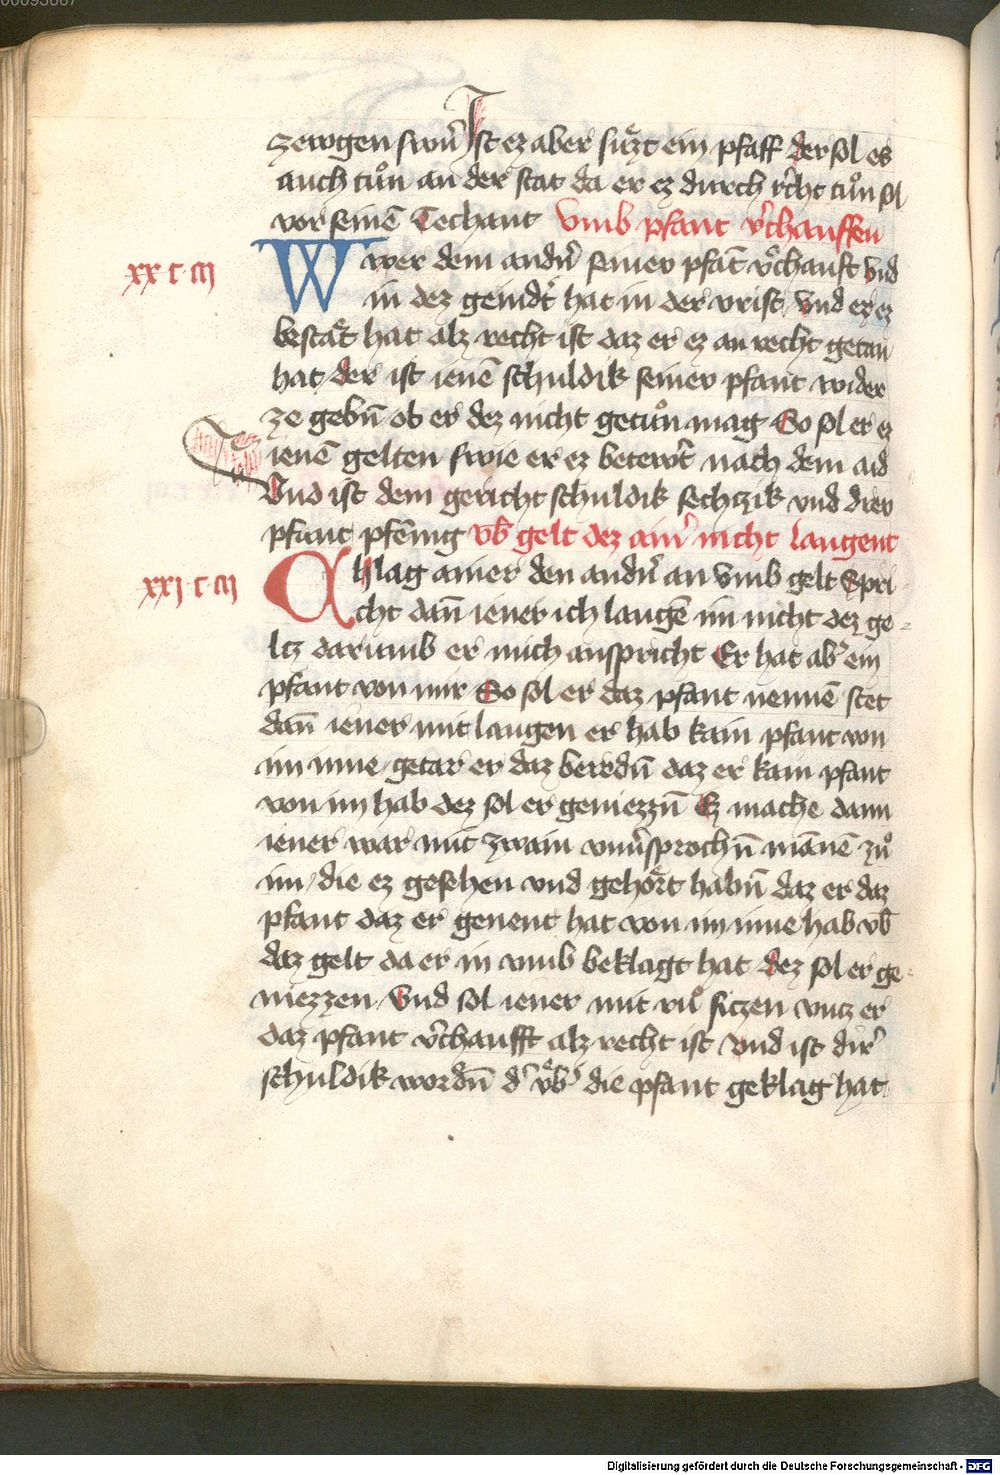 zewgen swern Ist ez aber suzt ein pfaff der sol es
auch tuͦn an der stat da er ez durch recht tuͦn sol
vor seinē Techant Vmb pfant v̄chauffen
xx c iij
Wwer dem andn̄ seinev pfāt v̄chauft vnd
in dez geindͤt hat in der vrist vnd er ez
bestaͤt hat alz recht ist daz er ez an recht getan
hat der ist ienē schuldik seinev pfant wider
ze gebn̄ ob er dez nicht getuͦn mag So sol er ez
ienē gelten swie er ez betewrt nach dem aid
Vnd ist dem gericht schuldik sechczik vnd drev
pfant pfēnig vb̄ gelt dez ainͬ nicht laugent
xxj c iij
Chlag ainer den andn̄ an vmb gelt Spri
cht dan̄ iener ich laugē im nicht dez ge=
ltz darumb er mich anspricht Er hat abͬ ein
pfant von mir So sol er daz pfant nennē stet
dan̄ iener mit laugen er hab kain pfant von
im inne getar er daz beredn̄ daz er kain pfant
von im hab dez sol er geniezzn̄ Ez mache dann
iener war mit zwain vnūsprochn̄ mānē zuͦ
im die ez gesehen vnd gehoͤrt habn̄ daz er daz
pfant daz er genent hat von im inne hab vb̄
daz gelt da er in vmb beklagt hat dez sol er ge=
niezzen Vnd sol iener mit ruͦ siczen vncz er
daz pfant v̄chaufft alz recht ist Vnd ist dirͬ
schuldik wordn̄ dͬ vͤbͬ die pfant geklag hat
Digitalisierung gefördert durch die Deutsche Forschungsgemeinschaft - DFG